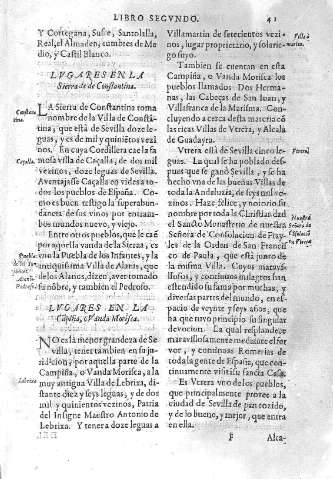 LIBRO SEGVNDO.
41
Y Cortegana, Sufre, Santolalla,
Real, el Almaden, cumbres de Me
dio, y Castil Blanco.
LVGARES EN LA
Sierra de Constantina.
Constantina.
LA Sierra de Constantina toma
nombre de la Villa de Constā
tina, que está de Sevilla doze le-
guas, y es de mil y quiniētos vezi
nos. En cuya Cordillera cae la fa
Caçalla.
mosa villa de Caçalla, de dos mil
vezinos, doze leguas de Sevilla.
Aventajasse Caçalla en vides a to-
dos los pueblos de España. Co-
mo es buen testigo la superabun-
dancia de sus vinos por entram-
bos mundos nuevo, y viejo.
Entre otros lugares que ay caē
por aquella vanda de la Sierra, es
vno la Puebla de los Infantes, y la
antiquissima Villa de Alanis, que
de los Alanos, dizen, aver tomado
su nōbre, y tambien el Pedroso.
LVGARES EN LA
Cāpiña, o Vanda Morisca.
NO es la menor grandeza de Se
villa, tener tambien en su ju-
ridicion, por aquella parte de la
Campiña, o Vanda Morisca, a la
Lebrixa
muy antigua Villa de Lebrixa, di-
stante diez y seys leguas, y de dos
mil y quinientos vezinos, Patria
del Insigne Maestro Antonio de
Lebrixa. Y tenera doze leguas a
Villamartin de setecientos vezi-
nos, lugar proprietario, y solarie-
go suyo.
Tambien se cuentan en esta
Campiña, o Vanda Morisca los
pueblos llamados Dos Herma-
nas, las Cabeças de San Iuan, y
Villafranca de la Marisma. Con-
cluyendo a cerca desta materia cō
las ricas Villas de Vtrera, y Alcala
de Guadayra.
Vtrera está de Sevilla cinco le-
guas. La qual se ha poblado des-
pues que se ganó Sevilla, y se ha
hecho vna de las buenas Villas de
toda la Andaluzia, de seys mil ve-
zinos. Haze felice, y notorio su
nombre por toda la Christiandad
el Sancto Monasterio de nuestra
Señora de Consolacion de Fray-
les de la Orden de San Francis-
co de Paula, que está junto de
la misma Villa. Cuyos maravi-
llosos, y continuos milagros han
estendido su fama por muchas, y
diversas partes del mundo, en es-
pacio de veynte y seys años, que
ha que tuvo principio su singular
devocion. La qual resplandece
maravillosamente mediante el fer
vor, y continuas Romerias de
toda la gente de España, que con-
tinuamente visita su sancta Casa.
Es Vtrera vno de los pueblos,
que principalmente provee a la
ciudad de Sevilla de pan cozido,
y de lo bueno, y mejor, que entra
en ella.
F
Alca-